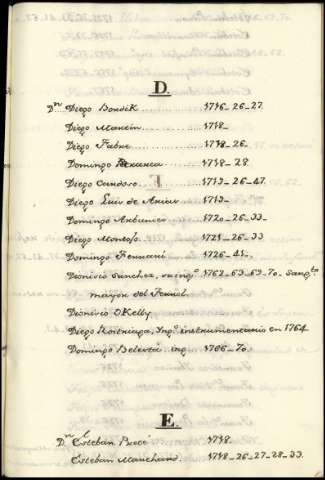 D.
Dn Diego Bordik 1716_26_27.
Diego Mancin 1718_
Diego Fabre 1718_26_
Domingo 1718_28.
Diego Cardoso 1719_26_47.
Diego Luis de Arias 1719_
Domingo Arbunies 1720_26_33_
Diego Montojo 1721_26_33
Domingo Ferrari 1726_41_
Dionisio Sanchez, 1762_63_69_70_ Sargto
mayor del Ferrol
Dionisio OKelly
Diego Ingo instrumentario en 1764
Domingo Beleta ing 1766_70_
E.
Dn Esteban 1718.
Esteban Marchand 1718_26_27_28_33.